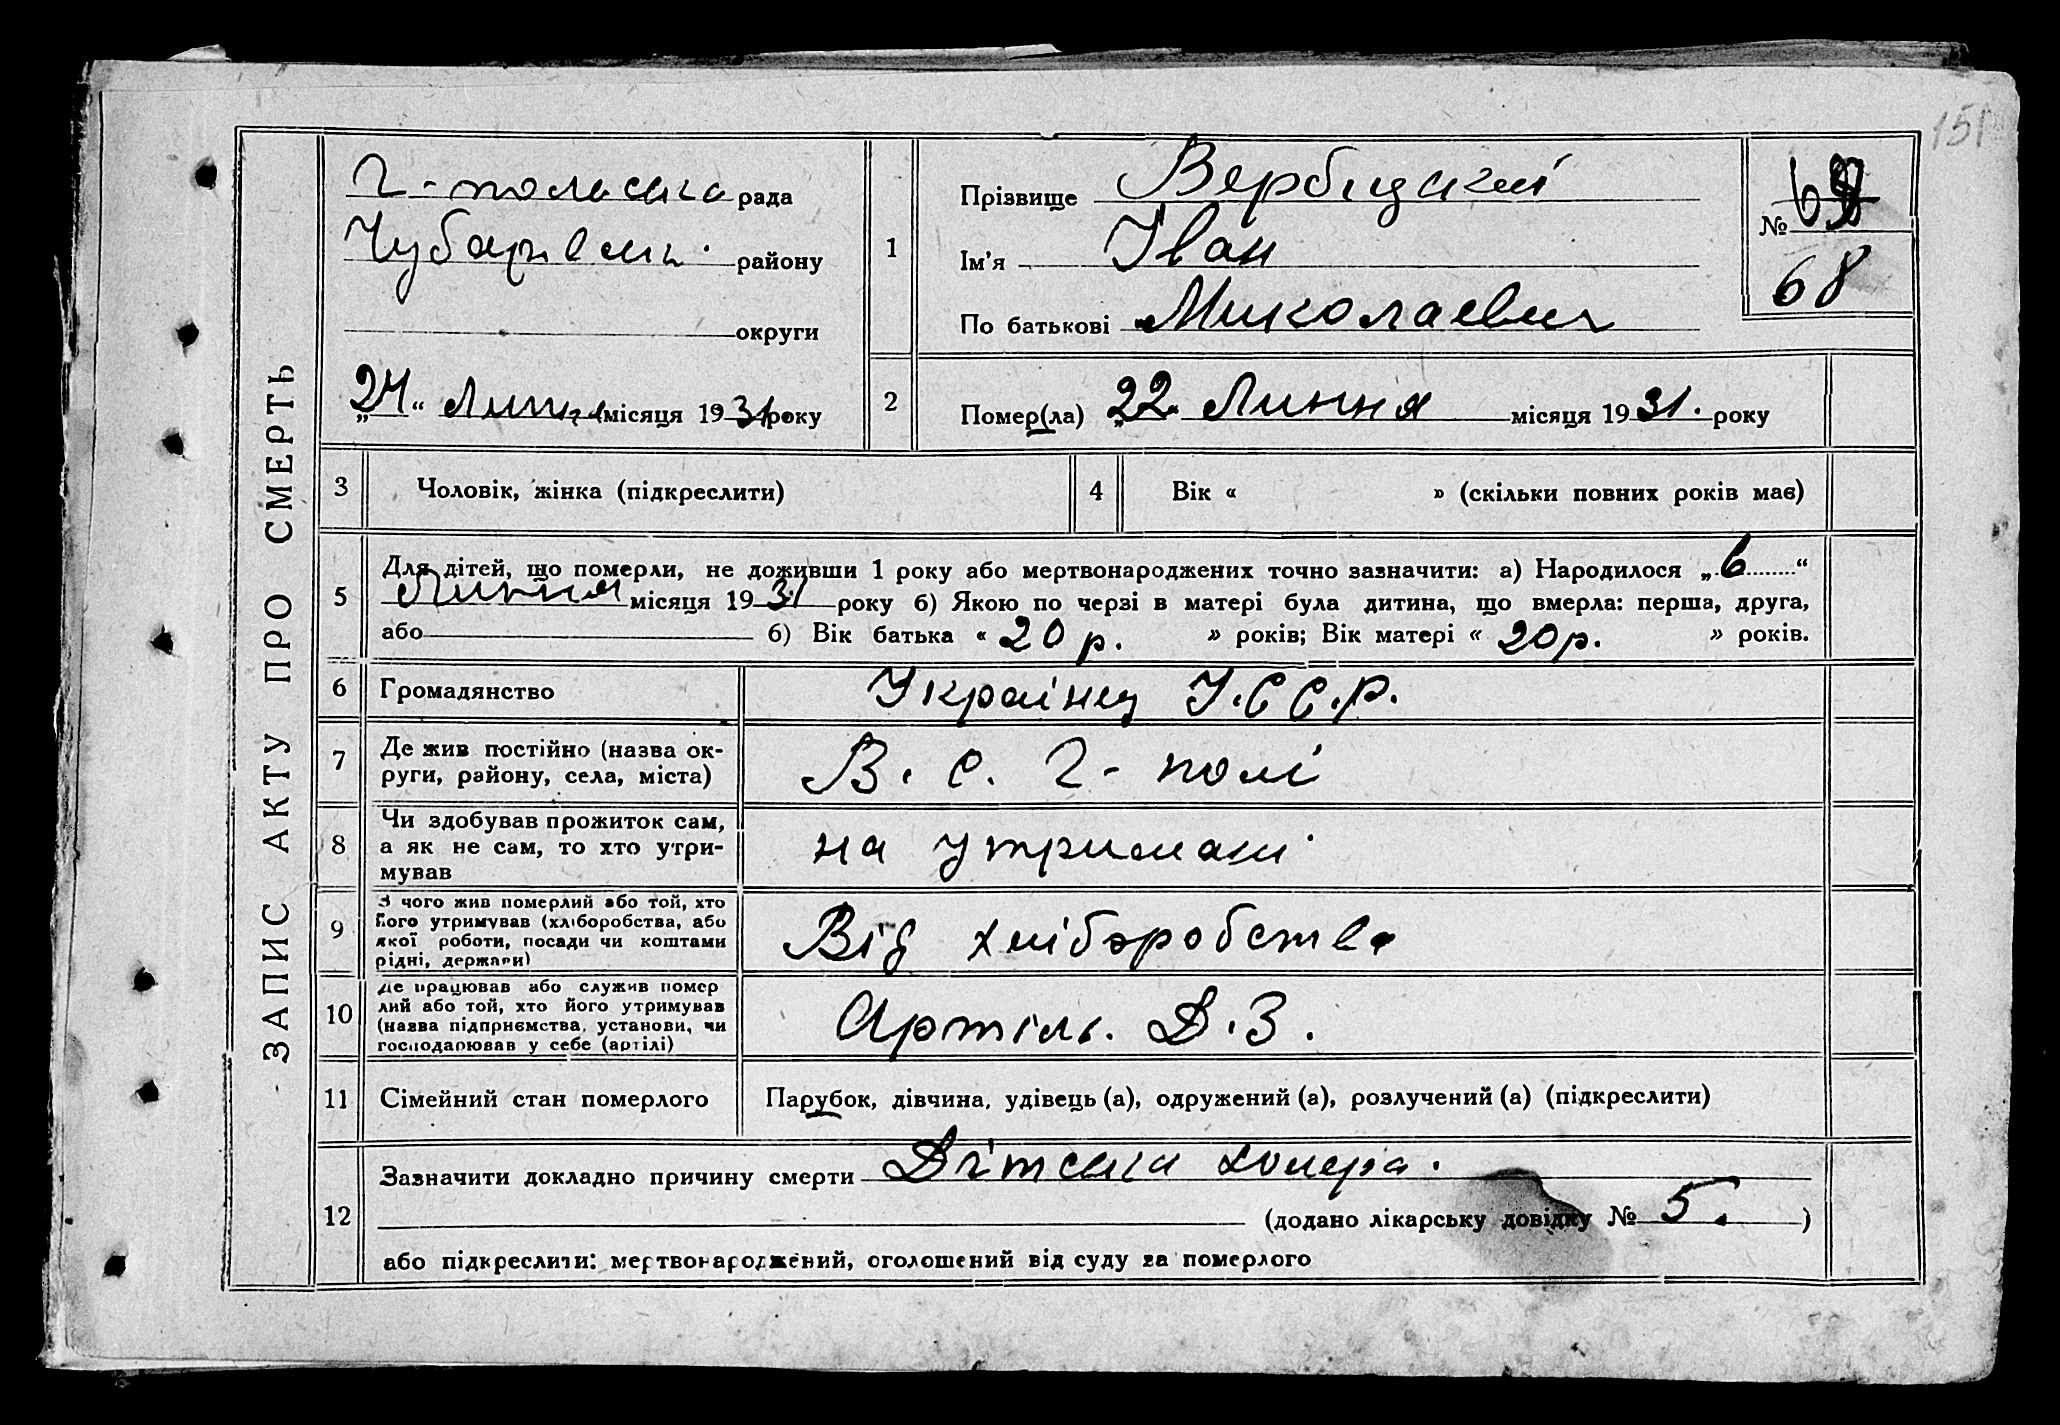 151
ЗАПИС АКТУ ПРО СМЕРТЬ
Г-польська рада
Чубарівськ. району
округи
„24“ Липня місяця 1931 року
1
Прізвище Вербіцький
Ім'я Іван
По батькові Миколаевич
№ 
68
2
Помер(ла) „22 Липня місяця 1931. року
3
Чоловік, жінка (підкреслити)
4
Вік « » (скільки повних років має)
5
Для дітей, що померли, не доживши 1 року або мертвонароджених точно зазначити: а) Народилося „6“
Липня місяця 1931 року б) Якою по черзі в матері була дитина, що вмерла: перша, друга,
або б) Вік батька « 20 р. » років; Вік матері « 20 р. » років.
6
Громадянство
Украінец У.С.С.Р.
7
Де жив постійно (назва ок-
руги, району, села, міста)
В. с. Г-полі
8
Чи здобував прожиток сам,
а як не сам, то хто утри-
мував
на утримані
9
З чого жив померлий або той, хто
його утримував (хліборобства, або
якої роботи, посади чи коштами
рідні, держави)
Від хліборобства
10
Де працював або служив помер
лий або той, хто його утримував
(назва підприємства, установи, чи
господарював у себе (артілі)
Артіль. Д.З.
11
Сімейний стан померлого
Парубок, дівчина, удівець (а), одружений (а), розлучений (а) (підкреслити)
12
Зазначити докладно причину смерти Дітська холера.
(додано лікарську довідку № 5. )
або підкреслити: мертвонароджений, оголошений від суду за померлого